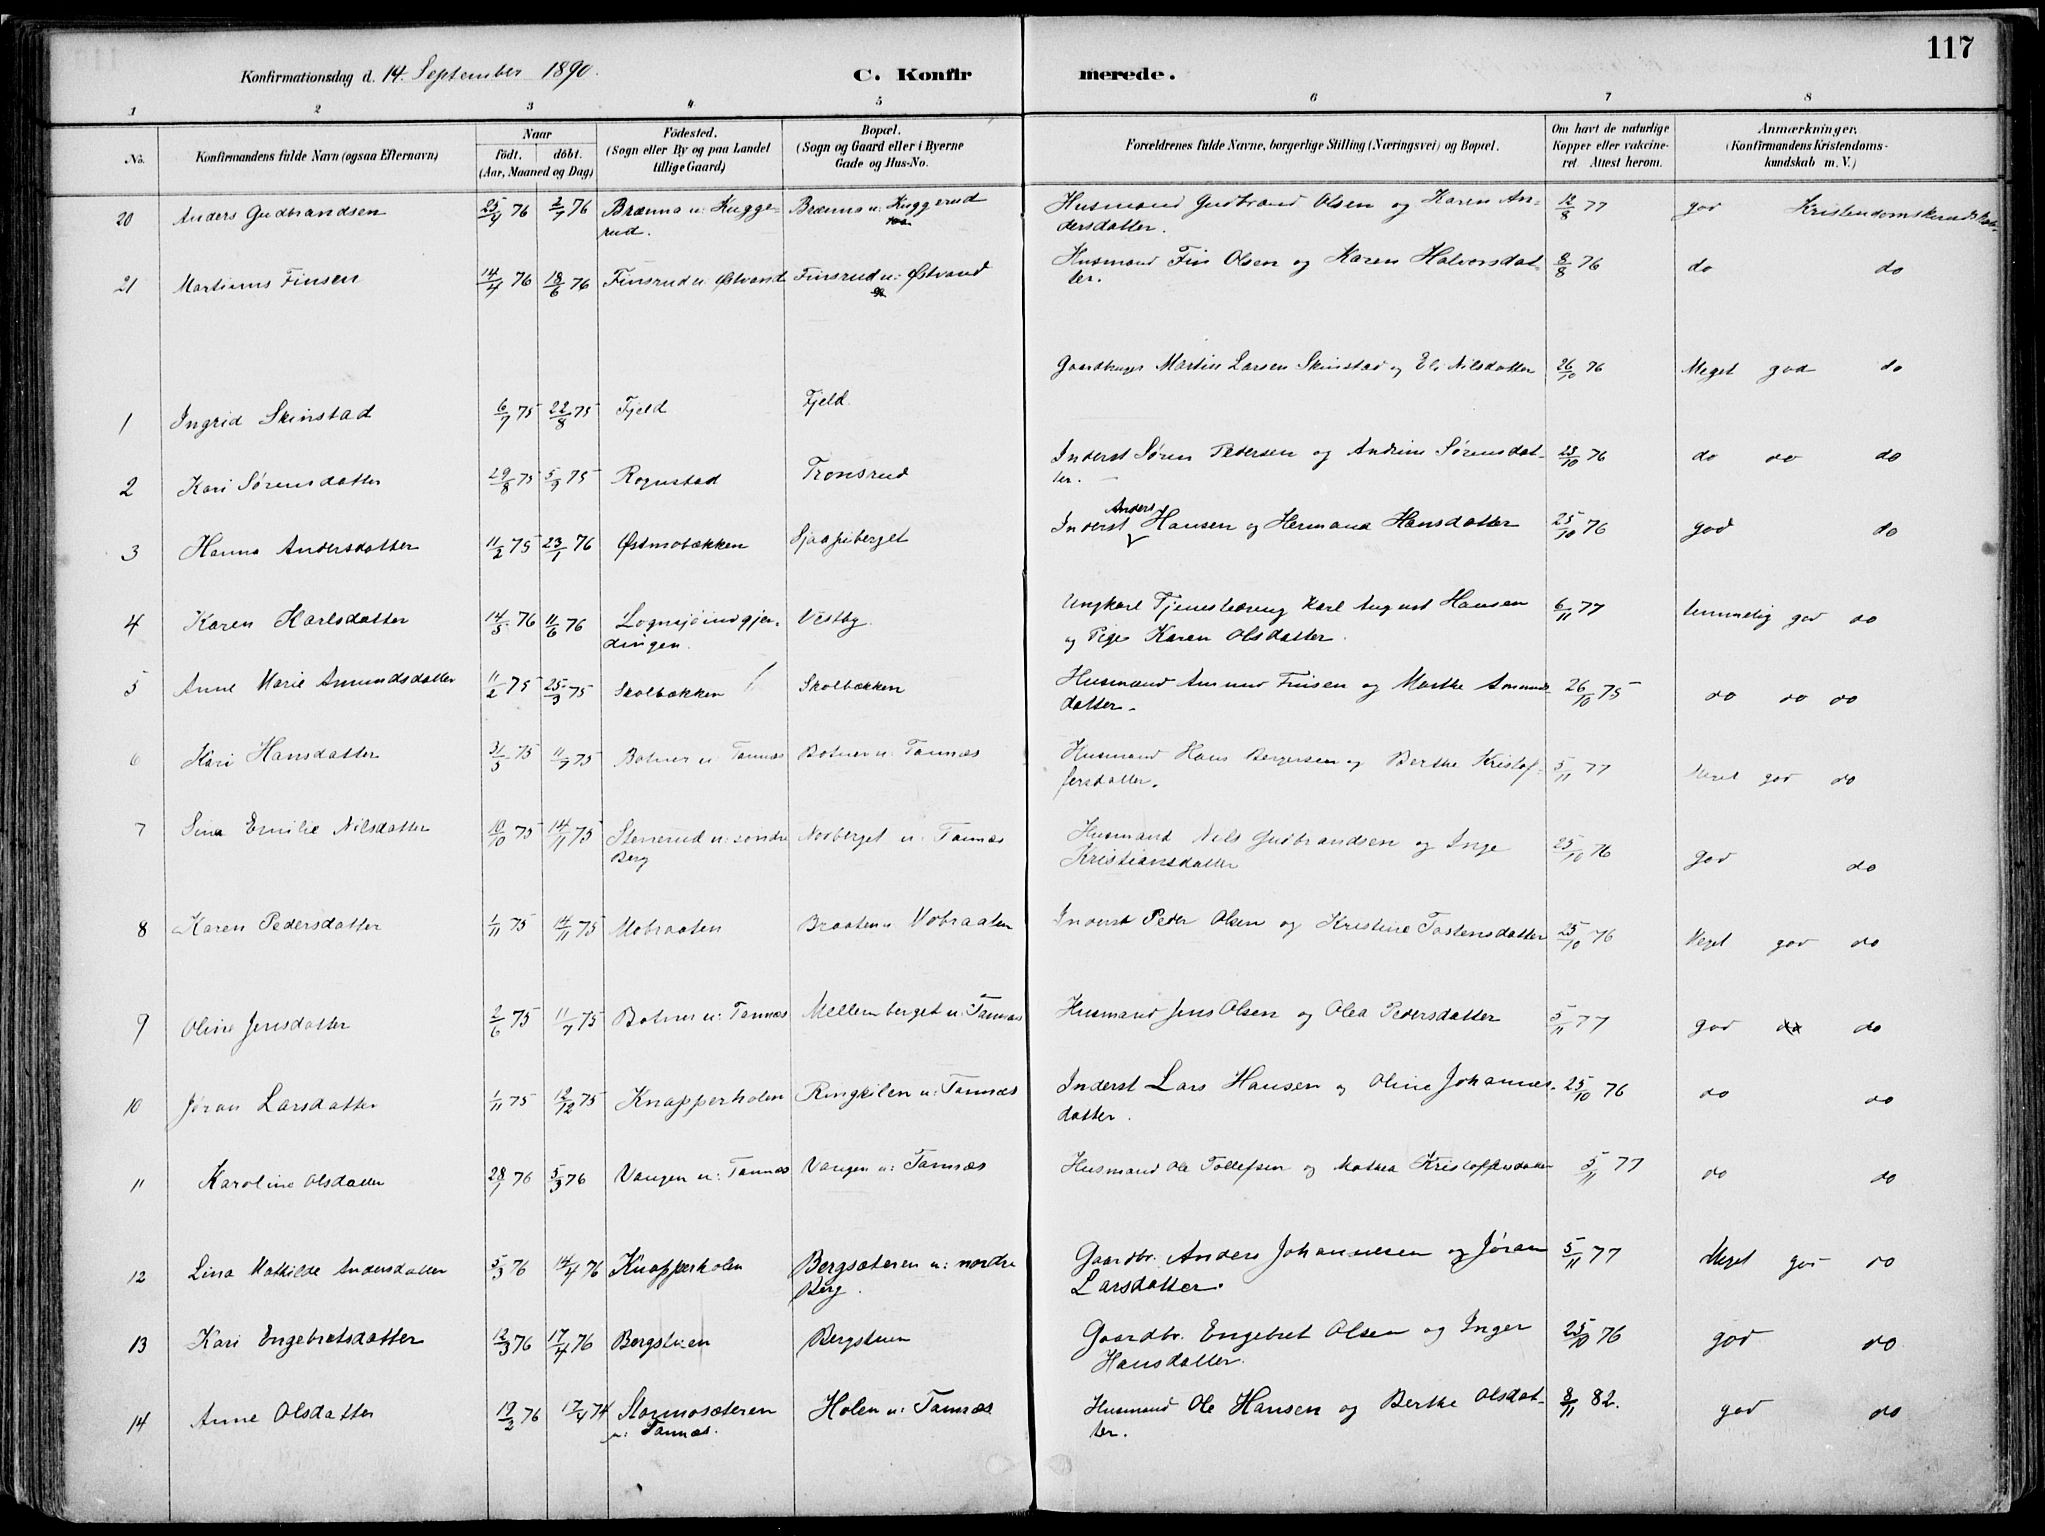 117
Konfirmationsdag d. 14. September 1890.
C. Konfirmerede.
1 2 3 4 5 6 7 8
No.
Konfirmandens fulde Navn (ogsaa Efternavn)
Naar
födt. döbt.
(Aar, Maaned og Dag)
Födested.
(Sogn eller By og paa Landet
tillige Gaard)
Bopæl.
(Sogn og Gaard eller i Byerne
Gade og Hus-No.
Forældrenes fulde Navne, borgerlige Stilling (Næringsvei) og Bopæl.
Om havt de naturlige
Kopper eller vakcine-
ret. Attest herom.
Anmærkninger.
(Konfirmandens Kristendoms-
kundskab m. V.)
20 Anders Gudbrandsen 25/4 76 2/7 76 Brænna u: Kugge- Brænna u: Kuggerud Husmand Gudbrand Olsen og Karen An- 12/8 77 god Kristendomskundskab
rud. dersdatter.
21 Martinus Finsen 14/4 76 18/6 76 Finsrud u: Østvand Finsrud u: Østvand Husmand Fin Olsen og Karen Halvorsdat- 8/8 76 do do
ter.
1 Ingrid Skinstad 6/7 75 22/8 75 Fjeld Fjeld Gaardbruger Martin Larsen Skinstad og Eli Nilsdatter 26/10 76 Meget god do
2 Kari Sørensdatter 29/8 75 5/9 75 Rognstad Tronsrud Inderst Søren Pedersen og Andrine Sørensdat- 23/10 76 do do do
ter.
3 Hanna Andersdatter 11/2 75 23/1 76 Østmobækken Inderst Anders Hansen og Hermana Hansdatter 25/10 76 god do
4 Karen Karlsdatter 14/5 76 11/6 76 Vestby Ungkarl Karl August Hansen 6/11 77 temmelig god do
dingen. og Pige Karen Olsdatter.
5 Anne Marie Amundsdatter 11/2 75 25/3 75 Skolbækken Skolbækken Husmand Amund Finsen og Marthe Amunds- 26/10 75 do do do
datter.
6 Kari Hansdatter 31/5 75 11/7 75 Botner u: Tannæs Botner u: Tannæs Husmand Hans Bergersen og Berthe Kristof- 5/11 77 Meget god do
fersdatter.
7 Sina Emilie Nilsdatter 10/10 75 14/11 75 Stenerud u: søndre Norberget u: Tannæs Husmand Nils Gudbrandsen og Inge 25/10 76 god do
Berg Kristiansdatter
8 Karen Pedersdatter 1/11 75 14/11 75 Mobraaten Braaten u: Mobraaten Inderst Peder Olsen og Kristine Tostensdatter 25/10 76 Meget god do
9 Oline Jensdatter 2/6 75 11/7 75 Botner u: Tannæs Mellemberget u: Tannæs Husmand Jens Olsen og Olea Pedersdatter 5/11 77 god do
10 Jøran Larsdatter 1/11 75 12/12 75 Knapperholen Ringkilen u: Tannæs Inderst Lars Hansen og Oline Johannes- 25/10 76 do do
datter.
11 Karoline Olsdatter 28/1 76 5/3 76 Vangen u: Tannæs Vangen u: Tannæs Husmand Ole Tollefsen og Mathea Kristoffersdatter 5/11 77 do do
12 Lina Mathilde Andersdatter 5/3 76 14/4 76 Knapperholen Bergsæteren u: nordre Gaardbr. Anders Johannesen og Jøran 5/11 77 Meget god do
Berg. Larsdatter.
13 Kari Engebretsdatter 12/3 76 17/4 76 Bergstuen Bergstuen Gaardbr. Engebret Olsen og Inger 25/10 76 god do
Hansdatter.
14 Anne Olsdatter 19/2 76 17/4 74 Stormosæteren Holen u: Tannæs Husmand Ole Hansen og Berthe Olsdat- 8/11 82. god do
u: Tannæs. ter.